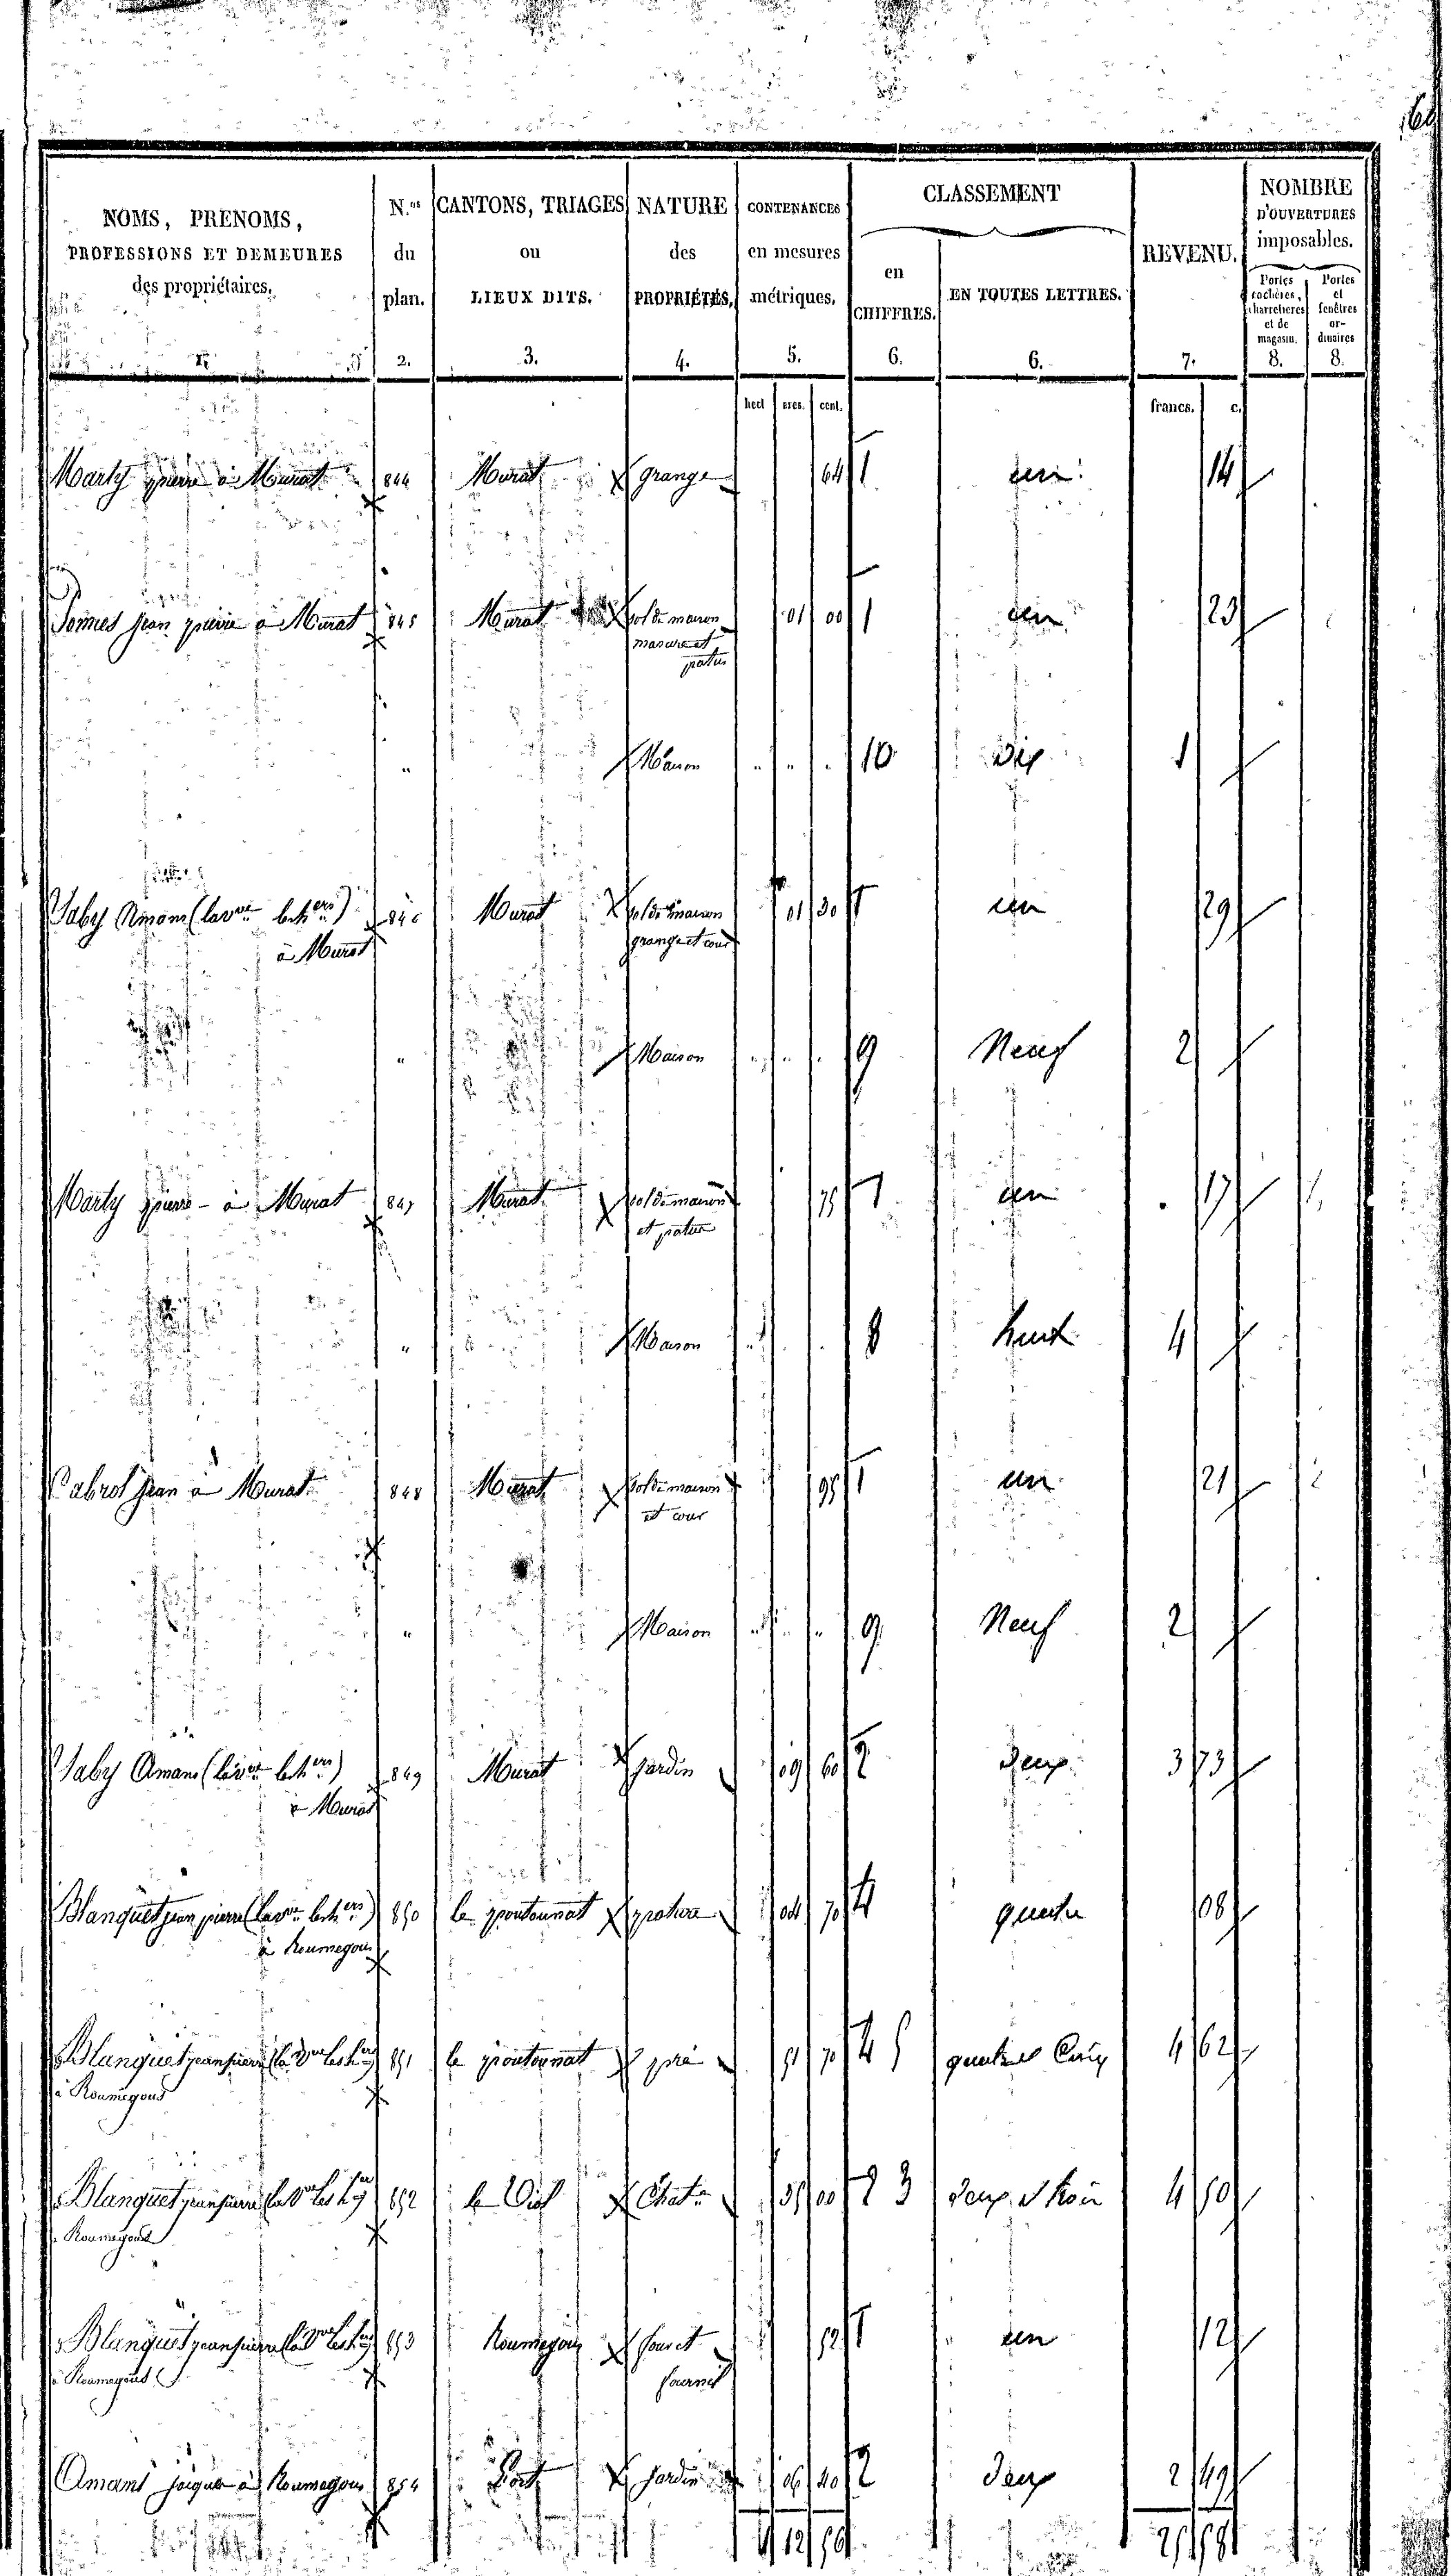 NOMS, PRENOMS, PROFESSIONS ET DEMEURES des propriétaires. 
N.os du plan. 2.
CANTONS, TRIAGES ou LIEUX DITS. 3.
NATURE des PROPRIÉTÉS. 4.
CONTENANCES en mesures métriques. 5.
CLASSEMENT
en CHIFFRES. 6.
EN TOUTES LETTRES. 6.
REVENU. 7.
NOMBRE D'OUVERTURES imposables.
Portes cochères, charretières et de magasin. 8.
Portes et fenêtres ordinaires 8.
hect ares. cent. francs. c.
Marty pierre à Murat 844 Murat grange 64 1 un 14
Jean pierre à Murat 845 Murat sol de maison 01 00 1 un 23
masure et
patus
" Maison " " " 10 Dix 1
846 Murat sol de maison 01 30 1 un 29
à Murat grange et cour
" Maison " " " 9 Neuf 2
Marty pierre à Murat 847 Murat sol de maison 75 1 un 17
et patus
" Maison 8 huit 4
Cabrol Jean à Murat 848 Murat sol de maison 95 1 un 21
et cour
" Maison " " " 9 Neuf 2
Amans 849 Murat jardin 09 60 2 deux 3 73
à Murat
Blanquet jean pierre 850 pature 04 70 4 quatre 08
à Roumegous
Blanquet jean pierre 851 pré 51 70 4 5 quatre et Cinq 4 62
à Roumegous
Blanquet jean pierre 852 Chat.re 35 00 2 3 deux et trois 4 50
à Roumegous
Blanquet jean pierre 853 Roumegous four et 52 1 un 12
à Roumegous fournil
Amans à Roumegous 854 jardin 06 40 2 deux 2 49
1 12 56 25 58